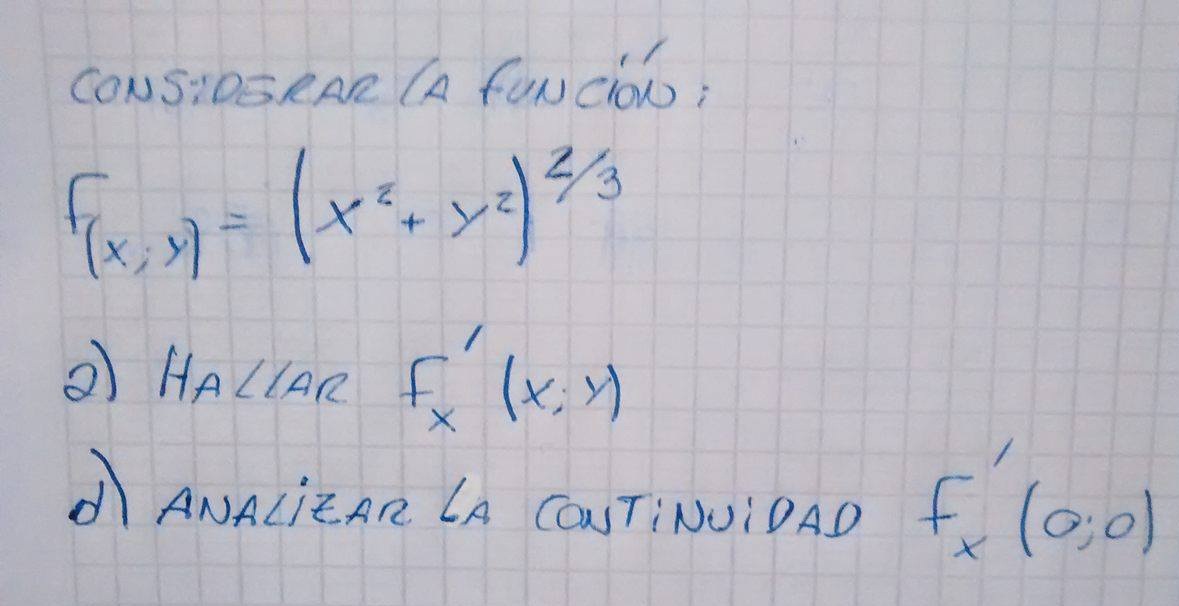 CONSiDERAR LA fUNCiÓN:
f(x;y) = (x² + y²)^2/3
a) HALLAR fx′ (x;y)
d) ANALiZAR LA CONTiNUiDAD fx′ (0;0)